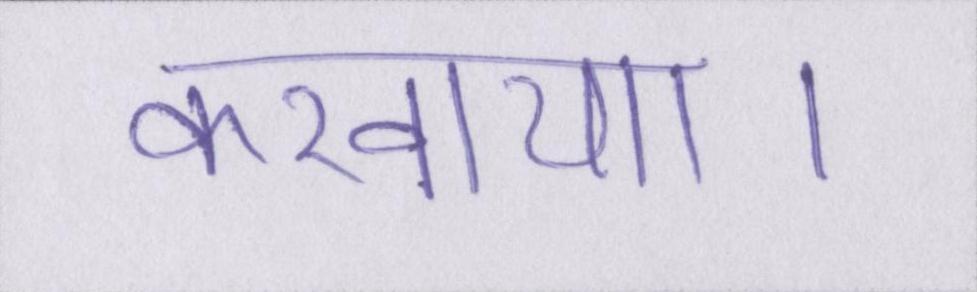 करवाया।